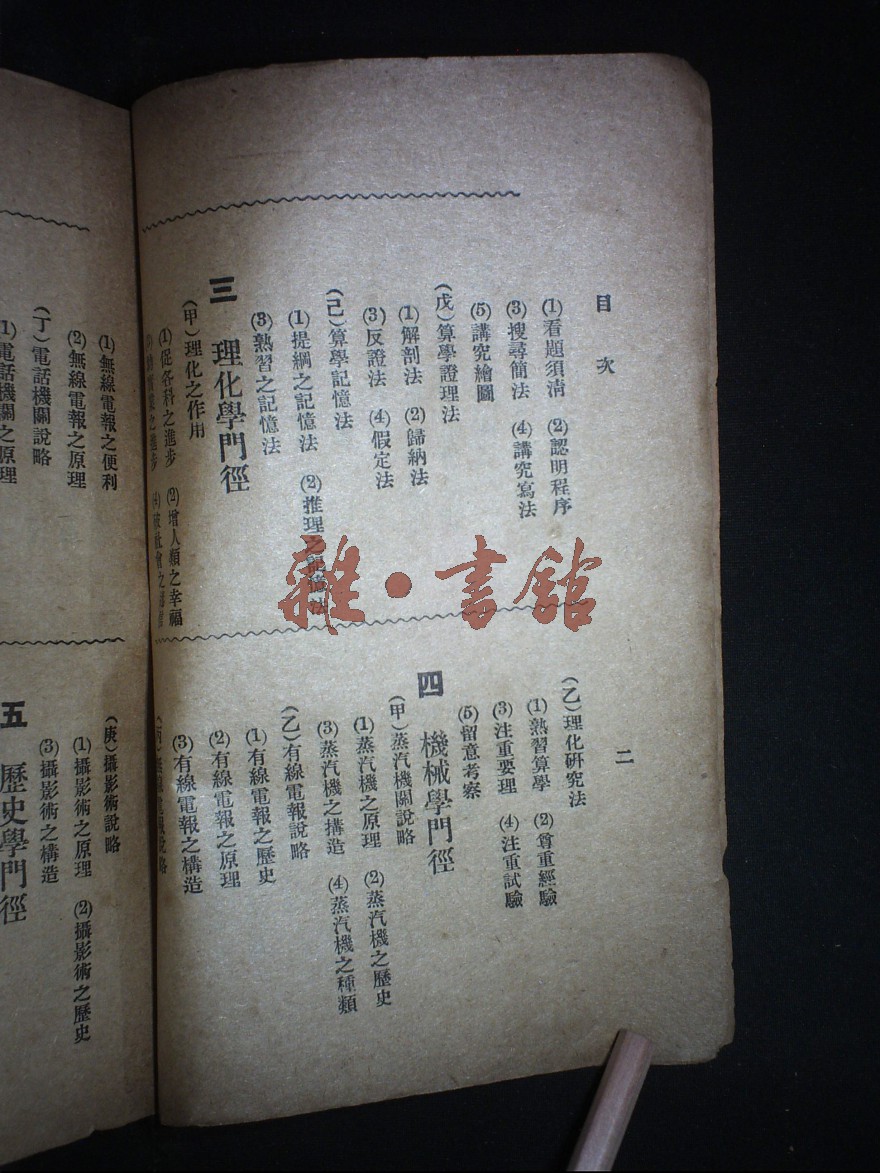 目次
(1)看題須清 (2)認明程序
(3)搜尋簡法 (4)講究寫法
(5)講究繪圖
(戊)算學證理法
(1)解剖法 (2)歸納法
(3)反證法 (4)假定法
(己)算學記憶法
(1)提綱之記憶法 (2)推理之記憶法
(3)熟習之記憶法
三 理化學門徑
(甲)理化之作用
(1)促各科之進步 (2)增人類之幸福
之進步 (4)破社會之
二
(乙)理化研究法
(1)熟習算學 (2)尊重經驗
(3)注重要理 (4)注重試驗
(5)留意考察
四 機械學門徑
(甲)蒸汽機關說略
(1)蒸汽機之原理 (2)蒸汽機之歷史
(3)蒸汽機之搆造 (4)蒸汽機之種類
(乙)有線電報說略
(1)有線電報之歷史
(2)有線電報之原理
(3)有線電報之構造
(丙)無線電報說略
(1)無線電報之便利
(2)無線電報之原理
(丁)電話機關說略
(1)電話機關之原理
(庚)攝影術說略
(1)攝影術之原理 (2)攝影術之歷史
(3)攝影術之構造
五 歷史學門徑
雜·書館